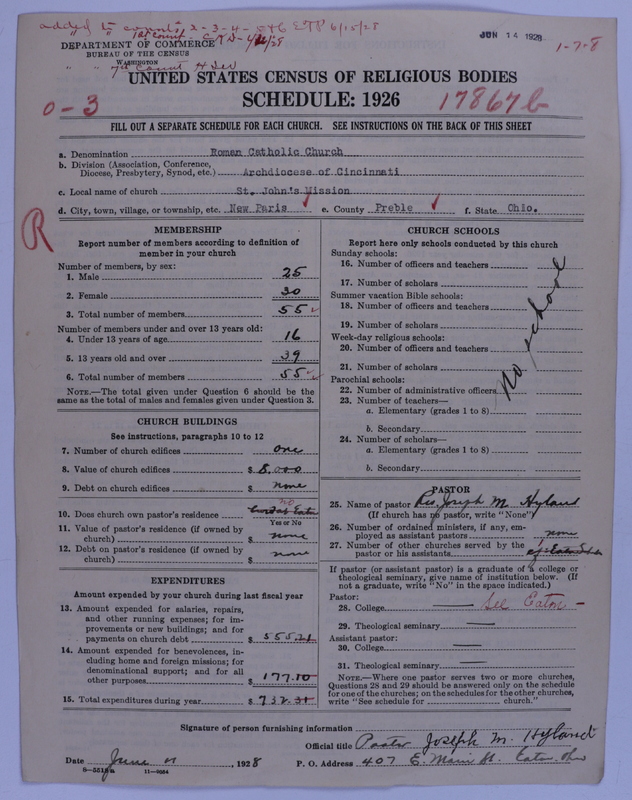 added to counts 2-3-4-5+6 ETB 6/15/28
" " 1st count - C.M.D -
JUN 14 1928
1-7-8
DEPARTMENT OF COMMERCE
BUREAU OF THE CENSUS
WASHINGTON
" " 7th Count H Dec
UNITED STATES CENSUS OF RELIGIOUS BODIES
0-3
SCHEDULE: 1926
17867b
FILL OUT A SEPARATE SCHEDULE FOR EACH CHURCH. SEE INSTRUCTIONS ON THE BACK OF THIS SHEET
a. Denomination Roman Catholic Church
b. Division (Association, Conference,
Diocese, Presbytery, Synod, etc.) Archdiocese of Cincinnati
c. Local name of church St. John's Mission
d. City, town, village, or township, etc. New Paris e. County Preble f. State Ohio.
R
MEMBERSHIP
Report number of members according to definition of
member in your church
Number of members, by sex:
1. Male 25
2. Female 30
3. Total number of members 55
Number of members under and over 13 years old:
4. Under 13 years of age 16
5. 13 years old and over 39
6. Total number of members 55
NOTE.—The total given under Question 6 should be
same as the total of males and females given under Question 3.
CHURCH BUILDINGS
See instructions, paragraphs 10 to 12
7. Number of church edifices one
8. Value of church edifices $ 5,000
9. Debt on church edifices $ none
10. Does church own pastor's residence no
Yes or No
11. Value of pastor's residence (if owned by
church) $ none
12. Debt on pastor's residence (if owned by
church) $ none
EXPENDITURES
Amount expended by your church during last fiscal year
13. Amount expended for salaries, repairs,
and other running expenses; for im-
provements or new buildings; and for
payments on church debt $ 555.21
14. Amount expended for benevolences, in-
cluding home and foreign missions; for
denominational support; and for all
other purposes $ 177.10
15. Total expenditures during year $ 732.31
CHURCH SCHOOLS
Report here only schools conducted by this church
Sunday schools:
16. Number of officers and teachers
17. Number of scholars
Summer vacation Bible schools:
18. Number of officers and teachers
19. Number of scholars
Week-day religious schools:
20. Number of officers and teachers
21. Number of scholars
Parochial schools:
22. Number of administrative officers
23. Number of teachers—
a. Elementary (grades 1 to 8)
b. Secondary
24. Number of scholars—
a. Elementary (grades 1 to 8)
b. Secondary
No school
PASTOR
25. Name of pastor Rev. Joseph M. Hyland
(If church has no pastor, write "None")
26. Number of ordained ministers, if any, em-
ployed as assistant pastors none
27. Number of other churches served by the
pastor or his assistants
If pastor (or assistant pastor) is a graduate of a college or
theological seminary, give name of institution below. (If
not a graduate, write "No" in the space indicated.)
Pastor:
28. College See Eaton -
29. Theological seminary
Assistant pastor:
30. College
31. Theological seminary
NOTE.—Where one pastor serves two or more churches,
Questions 28 and 29 should be answered only on the schedule
for one of the churches; on the schedules for the other churches,
write "See schedule for church."
Signature of person furnishing information
Official title Pastor Joseph M. Hyland
Date June 11, 1928 P. O. Address 407 E. Main St. Eaton, Ohio
11—9684